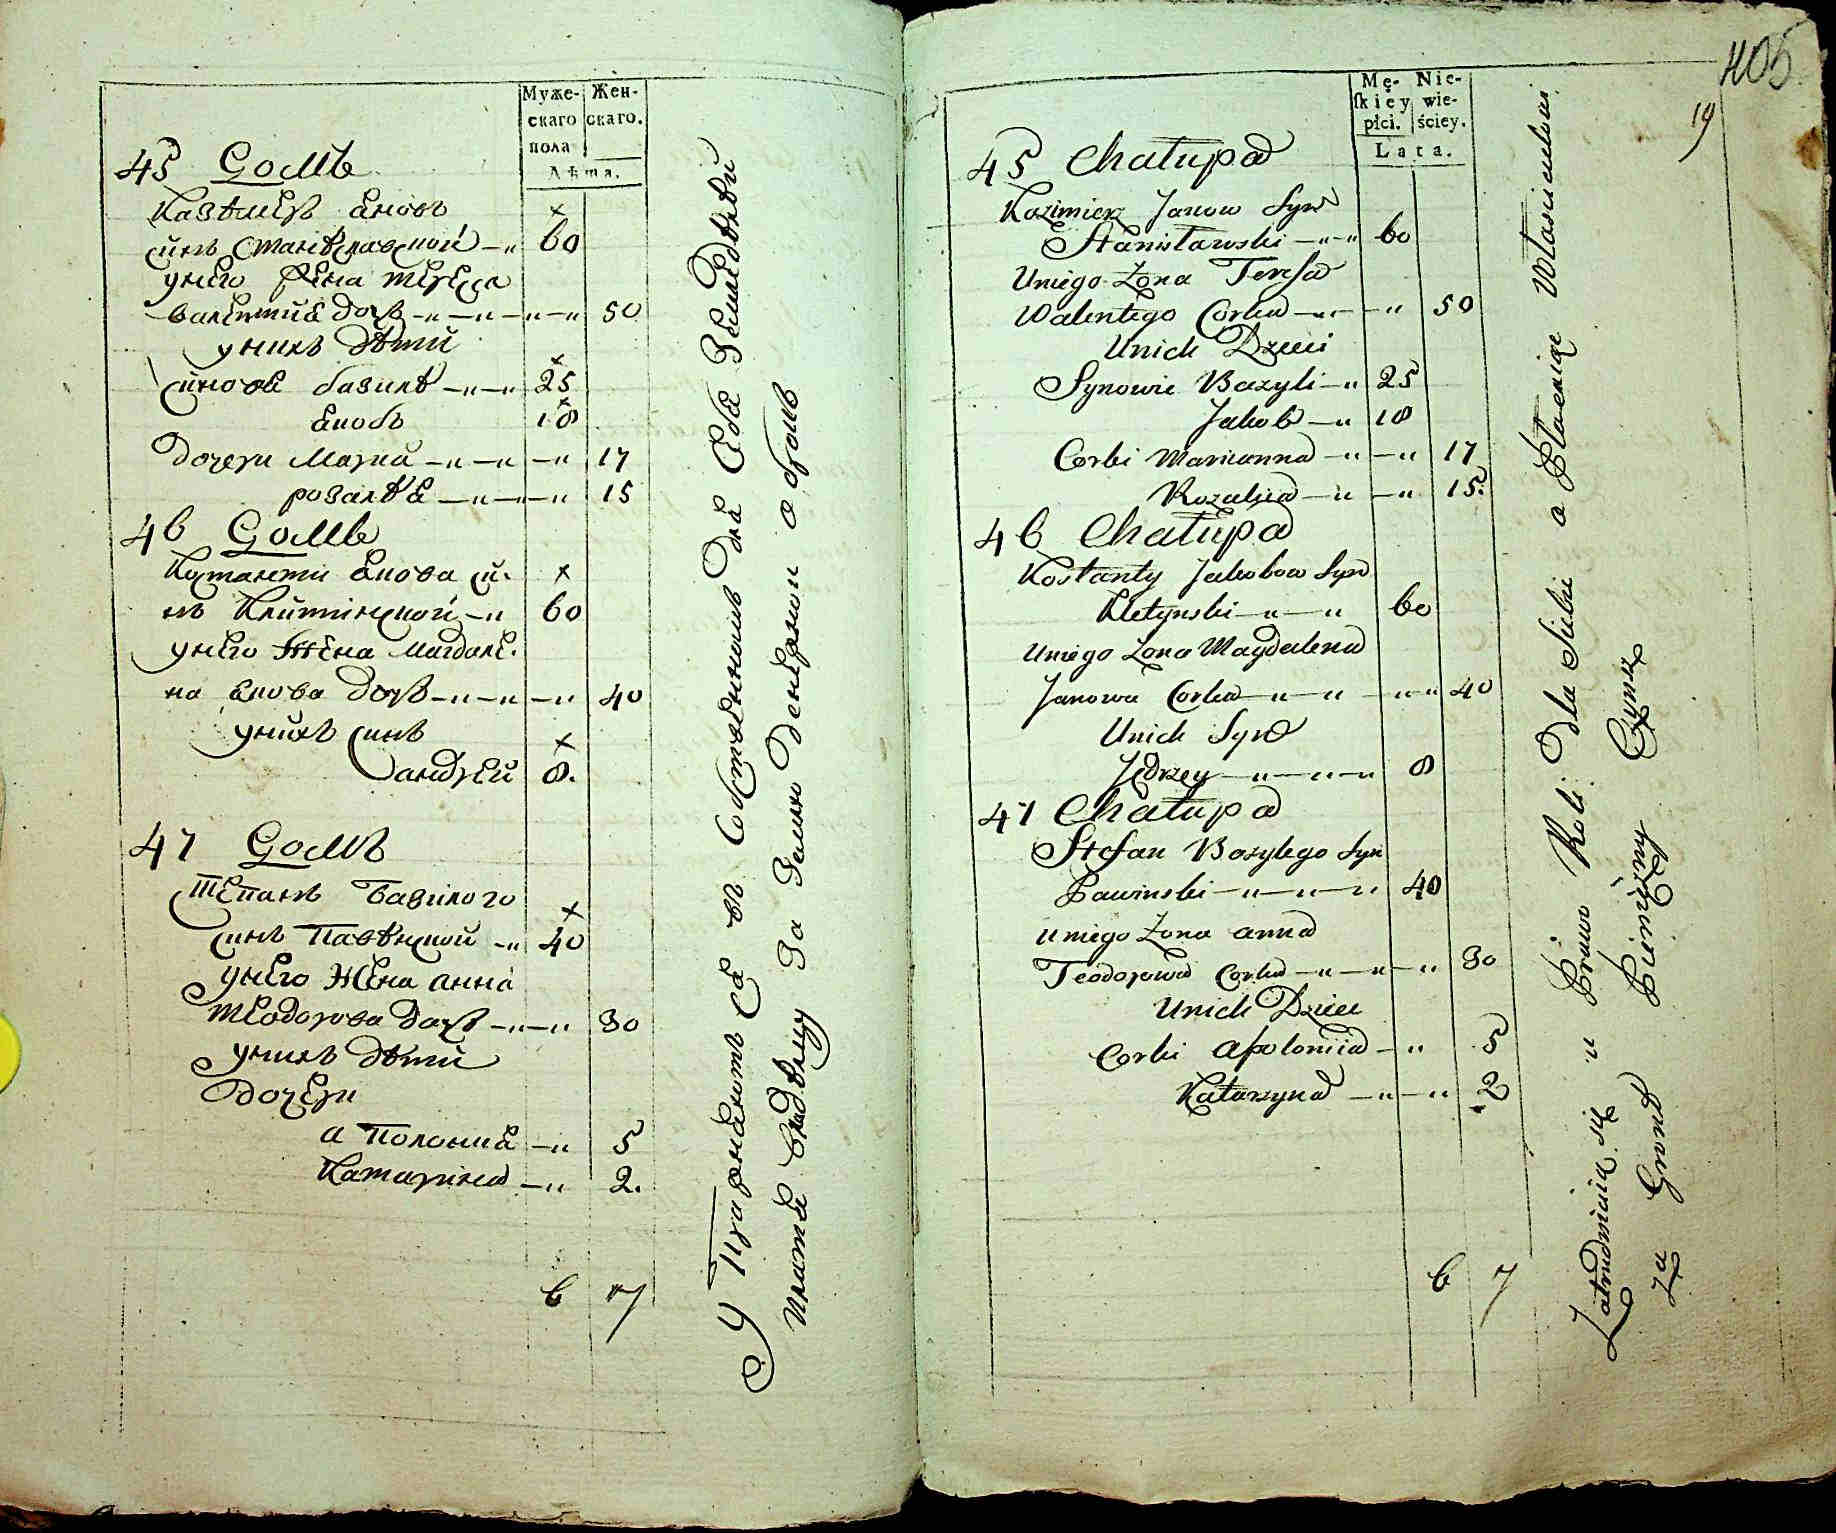 Муже-
скаго
пола
Жен-
скаго.
Лѣта.
45 Домъ
Казѣмеръ Яновъ
синъ Станѣславской 60
унего Жена Тереса
Валентия Дочь 50
унихъ Дѣти
синовя базилѣ 25
Якобъ 18
Дочери Марна 17
розалѣя 15
46 Домъ
Костанти Якова си-
нъ Клитинской 60
унего Жена Магдале-
на Янова Дочь 40
унихъ синъ
андрей 8.
47 Домъ
Степанъ базилого
синъ Павѣнской 40
унего Жена анна
Теодорова Дочь 30
унихъ Дѣти
Дочери
аполония 5
Катарина 2.
6 7
405
19
Mę-
ſkiey
płci.
Nie-
wie-
ściey.
Lata.
45 Chałupa
Kazimierz Janow Syn
Stanisławski 60
Uniego Zona Teresa
Walentego Corka 50
Unich Dzieci
Synowie Bazyli 25
Jakob 18
Corki Marianna 17
Rozalija 15.
46 Chałupa
Kostanty Jakobow Syn
Kletynski 60
Uniego Zona Magdalena
Janowa Corka 40
Unich Syn
Jędrzey 8
47 Chałupa
Stefan Bazylego Syn
Pawinski 40
Uniego Zona anna
Teodorowa Corka 30
Unich Dzieci
Corki Apolonija 5
Katarzyna 2
6 7
Zatrudniaią się u Prawo Roli Dla Siebie a Płacenie Własicielowi
Za Grunt Pieniężny Czynsz